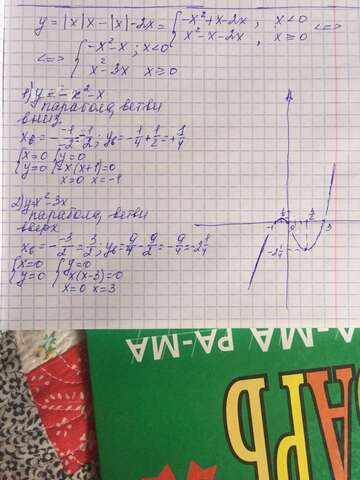 y = |x|x − |x| − 2x = { −x² + x − 2x, x < 0 <=>
x² − x − 2x, x ≥ 0
<=> { −x² − x; x < 0
x² − 3x x ≥ 0
1) y = −x² − x
парабола, ветви
вниз
xв = − −1/−2 = −1/2; yв = −1/4 + 1/2 = +1/4
{ x = 0 { y = 0
{ y = 0 { −x(x+1) = 0
x = 0 x = −1
2) y = x² − 3x
парабола, ветви
вверх
xв = − −3/2 = 3/2; yв = 9/4 − 9/2 = −9/4 = −2 1/4
{ x = 0 { y = 0
{ y = 0 { x(x−3) = 0
x = 0 x = 3
1/4
3/2
−1 0 1 3
−2 1/4
МА-МА РА-МА
ВАРЬ